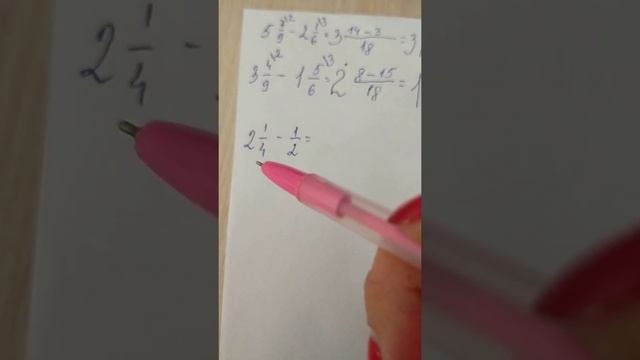 5 7/9\2 - 2 1/6\3 = 3 14-3/18 = 3
3 4/9\2 - 1 5/6\3 = 2 8-15/18 = 1
2 1/4 - 1/2 =